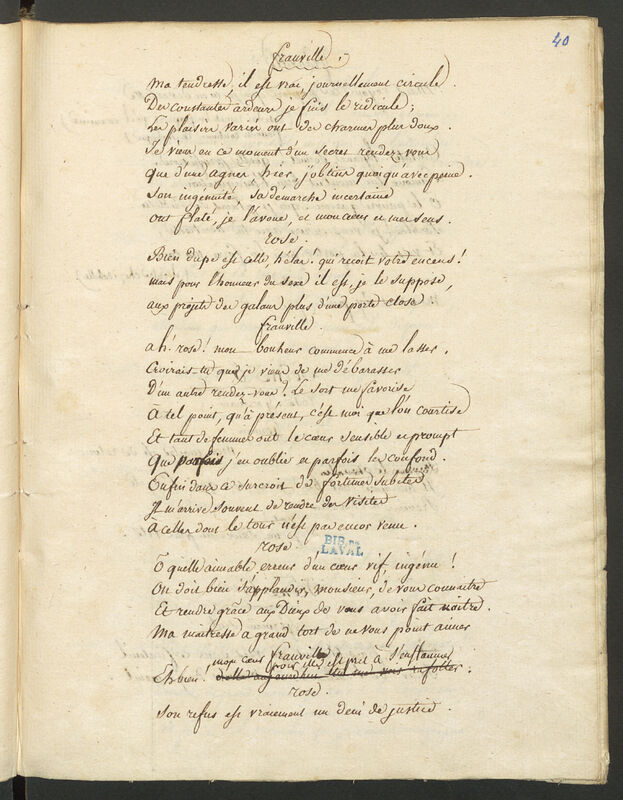 40
franville :
Ma tendresse, il est vrai journellement circule.
Des constantes ardeurs je fuis le ridicule ;
Les plaisirs variés ont des charmes plus doux.
Je viens en ce moment d'un secret rendez-vous
Que d'une agnes hier, j'obtins quoiqu'avec peine.
Son ingénuité, sa demarche incertaine
ont flaté, je l'avoue, et mon cœur et mes sens.
rose.
Bien dupe est celle hélas ! qui recoit votre encens !
mais pour l'honneur du sexe il est, je le suppose,
aux projets des galans plus d'une porte close
franville.
ah ! rose ! mon bonheur commence à me lasser.
Croirais tu que je viens de me débarasser
D'un autre rendez-vous ? Le sort me favorise
A tel point, qu'à présent, c'est moi que l'on courtise
Et tant de femmes ont le cœur sensible et prompt
Que parfois j'en oublie et parfois les confond.
Enfin dans ce surcroit de fortunes subites
Il m'arrive souvent de rendre des visites
À celles dont le tour n'est pas encor venu.
rose
BIB. DE
LAVAL
Ô quelle aimable erreur d'un cœur vif, ingénu !
On doit bien s'applaudir, monsieur, de vous connaitre
Et rendre grâce aux Dieux de vous avoir fait naitre.
Ma maitresse a grand tort de ne vous point aimer
franville
mon cœur pour elle est prêt à s'enflammer
Eh bien !
rose.
Son refus est vraiement un deni de justice.